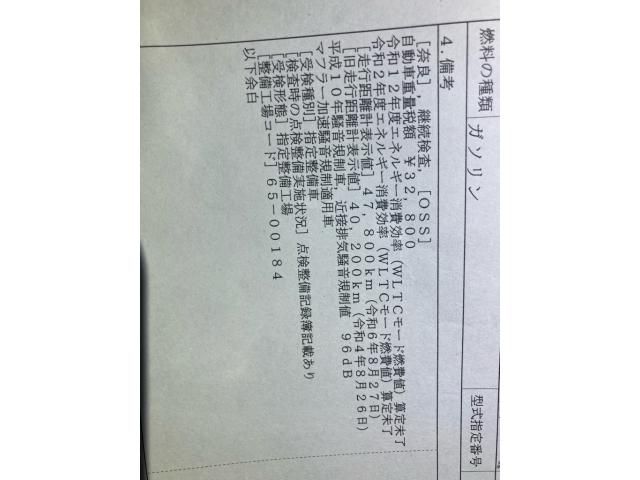 燃料の種類 ガソリン 型式指定番号
4.備考
[奈良],継続検査,[OSS]
自動車重量税額 ¥32,800
令和12年度エネルギー消費効率(WLTCモード燃費値)算定未了
令和2年度エネルギー消費効率(WLTCモード燃費値)算定未了
[走行距離計表示値]47,800km(令和6年8月27日)
[旧走行距離計表示値]40,200km(令和4年8月26日)
平成10年騒音規制車,近接排気騒音規制値 96dB
マフラー加速騒音規制適用車
[受検種別]指定整備車
[検査時の点検整備実施状況]点検整備記録簿記載あり
[受検形態]指定整備工場
[整備工場コード]65-00184
以下余白